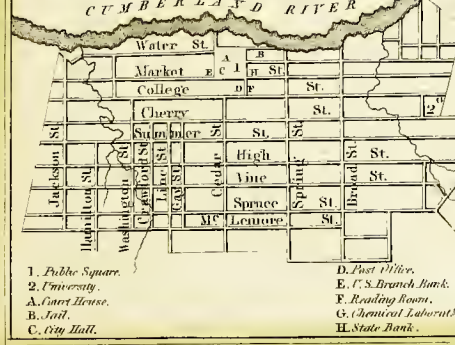 CUMBERLAND RIVER
Water St.
A B
Market E C 1 H St.
College D F St.
Cherry St.
2
Summer St.
High St.
Vine St.
Spruce St.
Mc Lemore St.
Jackson St.
Hamilton St.
Washington St.
Crawford St.
Line St.
Gay St.
Cedar
Spring St.
Broad St.
1. Public Square.
2. University.
A. Court House.
B. Jail.
C. City Hall.
D. Post Office.
E. U.S. Branch Bank.
F. Reading Room.
G. Chemical Laborat
H. State Bank.